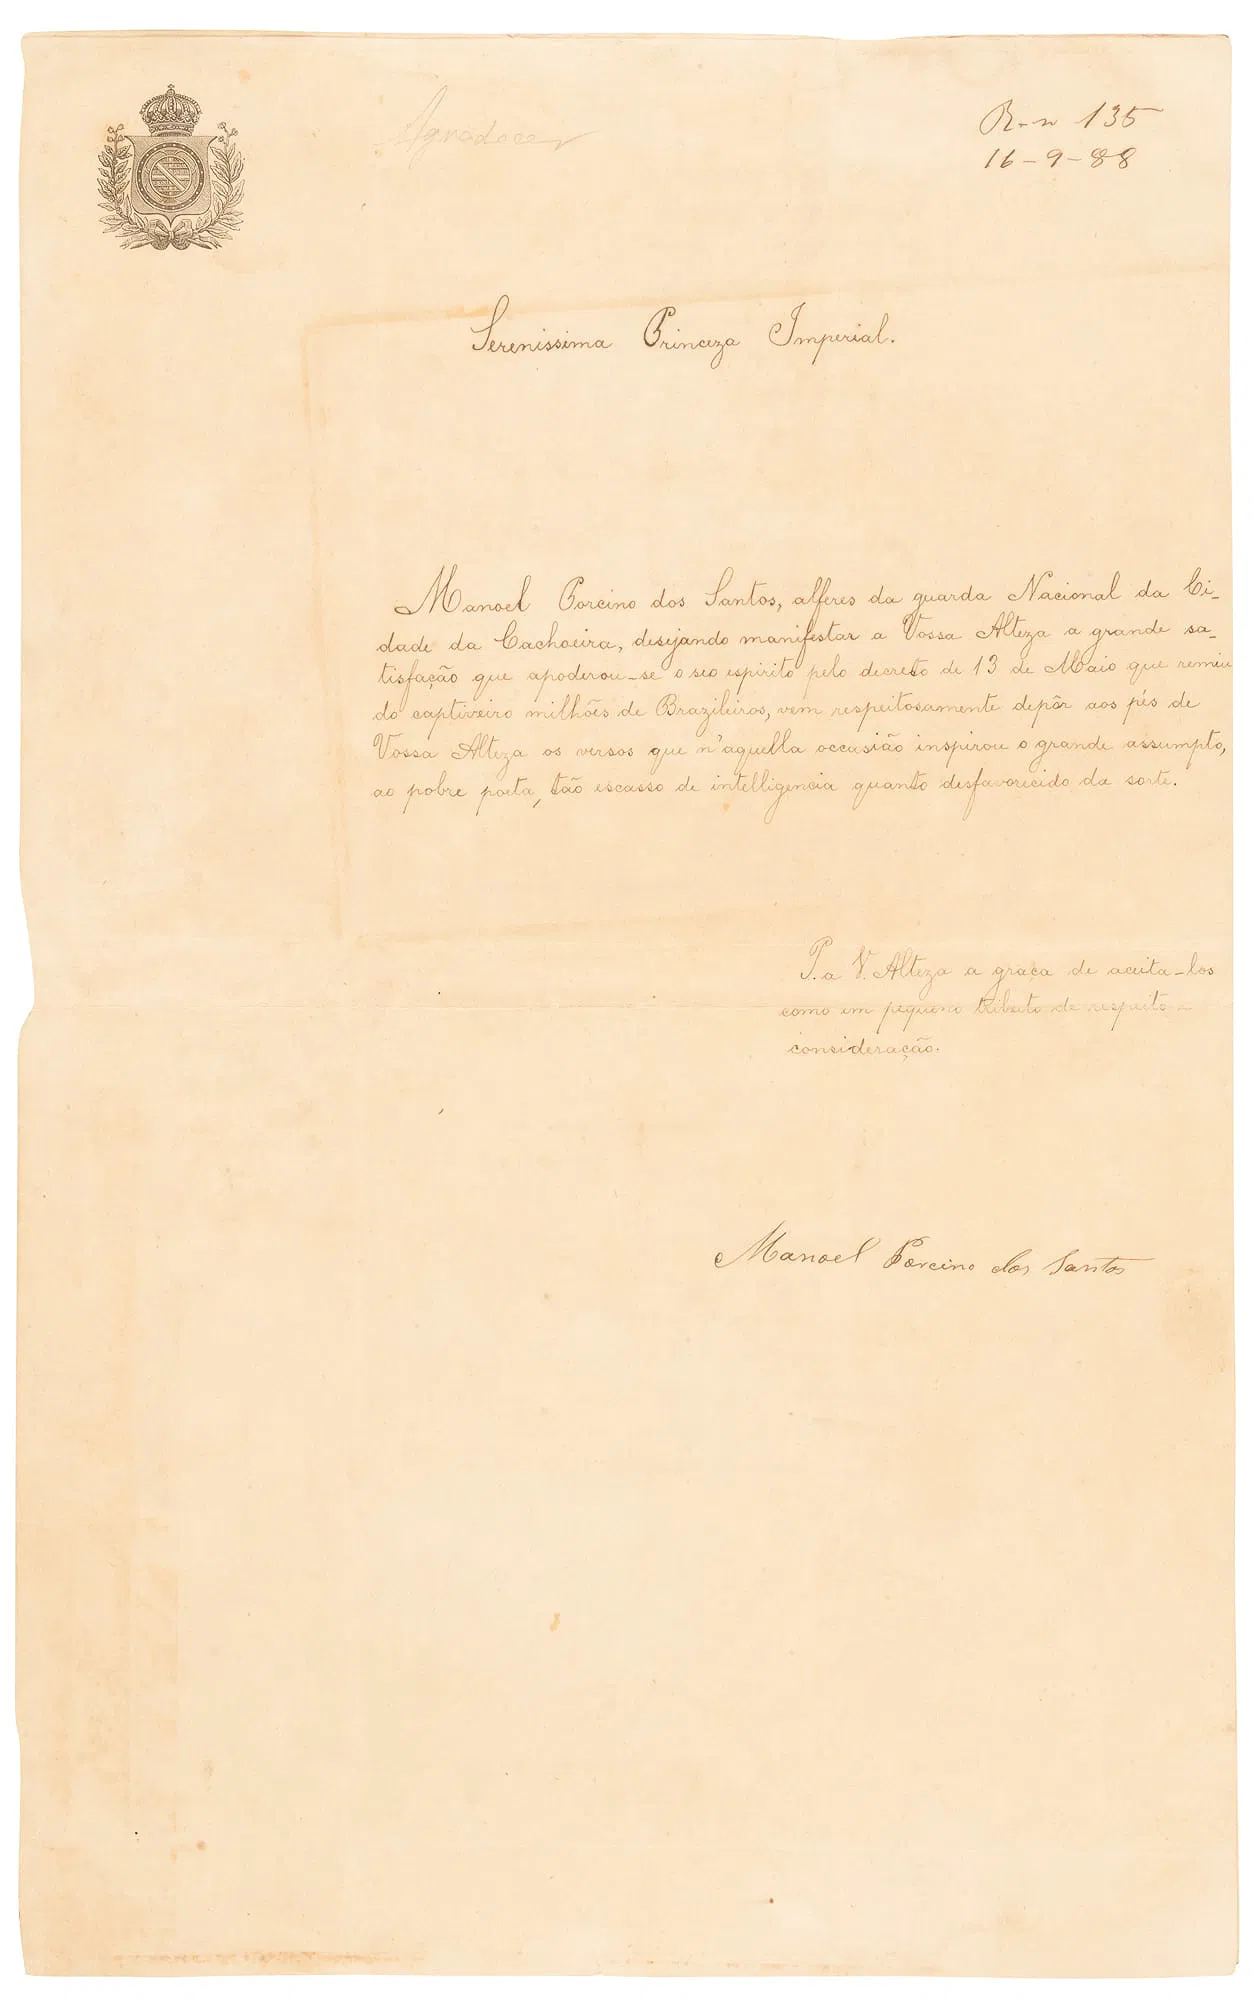 Agradecer
R-n 135
16-9-88
Serenissima Princeza Imperial.
Manoel Porcino dos Santos, alferes da guarda Nacional da Ci-
dade da Cachoeira, desejando manifestar a Vossa Alteza a grande sa-
tisfação que apoderou-se o seo espirito pelo decreto de 13 de Maio que remiu
do captiveiro milhões de Brazileiros, vem respeitosamente depôr aos pés de
Vossa Alteza os versos que n'aquella occasião inspirou o grande assumpto,
ao pobre poeta, tão escasso de intelligencia quanto desfavorecido da sorte.
P. a V. Alteza a graça de aceita-los
como um pequeno tributo de respeito e
consideração.
Manoel Porcino dos Santos